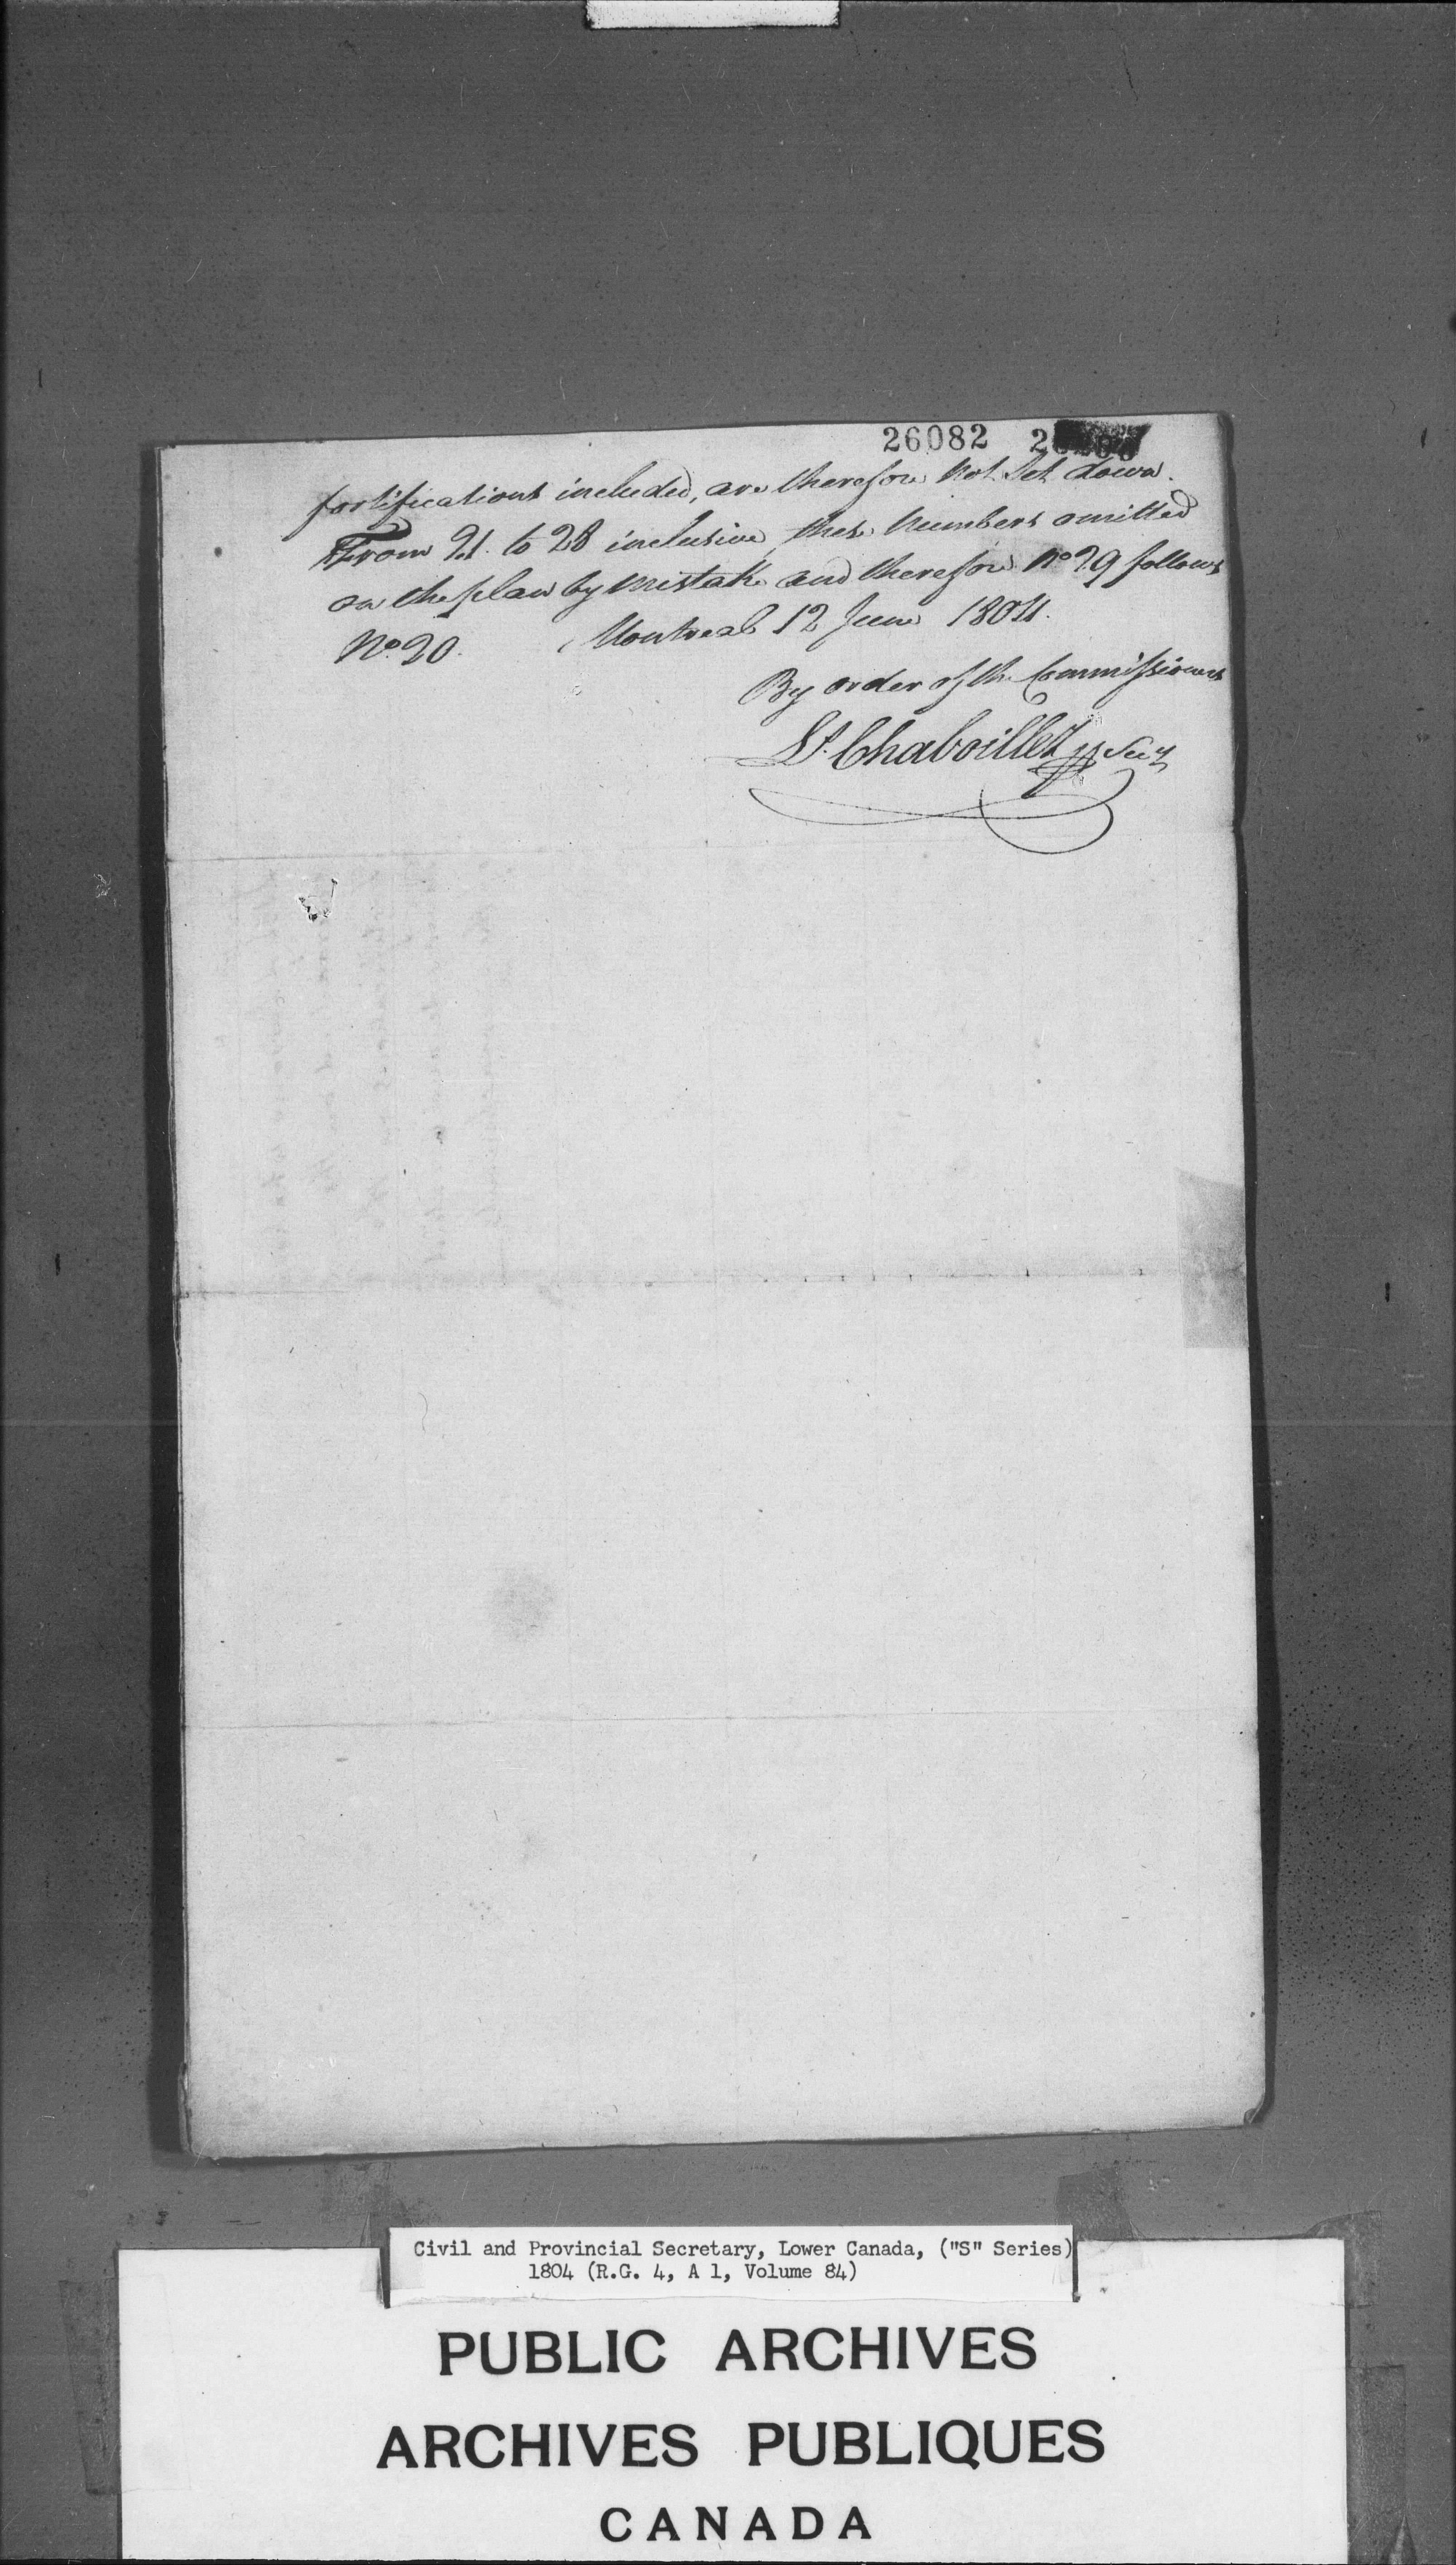 26082
fortifications included, are therefore Not Set down.
From 21. to 28 inclusive, these Numbers omitted
on the plan by mistake and therefore No 29 follows
No. 20. Montreal 12 June 1804.
By order of the Commissioners
Ls. Chaboillez Secy
Civil and Provincial Secretary, Lower Canada, ("S" Series)
1804 (R.G. 4, A 1, Volume 84)
PUBLIC ARCHIVES
ARCHIVES PUBLIQUES
CANADA